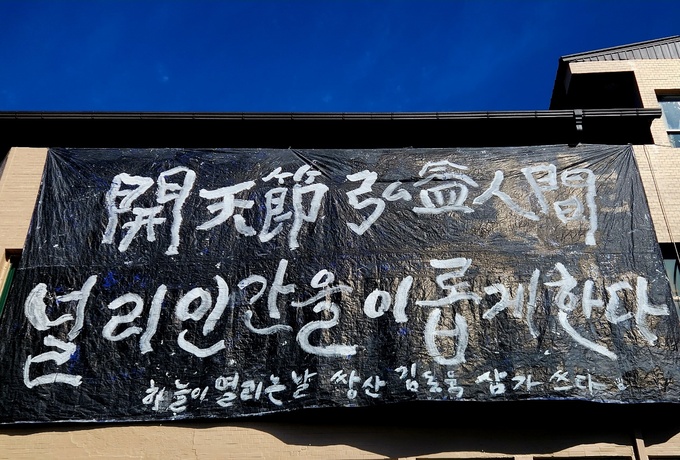 開天節 弘益人間
널리인간을 이롭게한다
하늘이 열리는날 쌍산 김동욱 삼가 쓰다